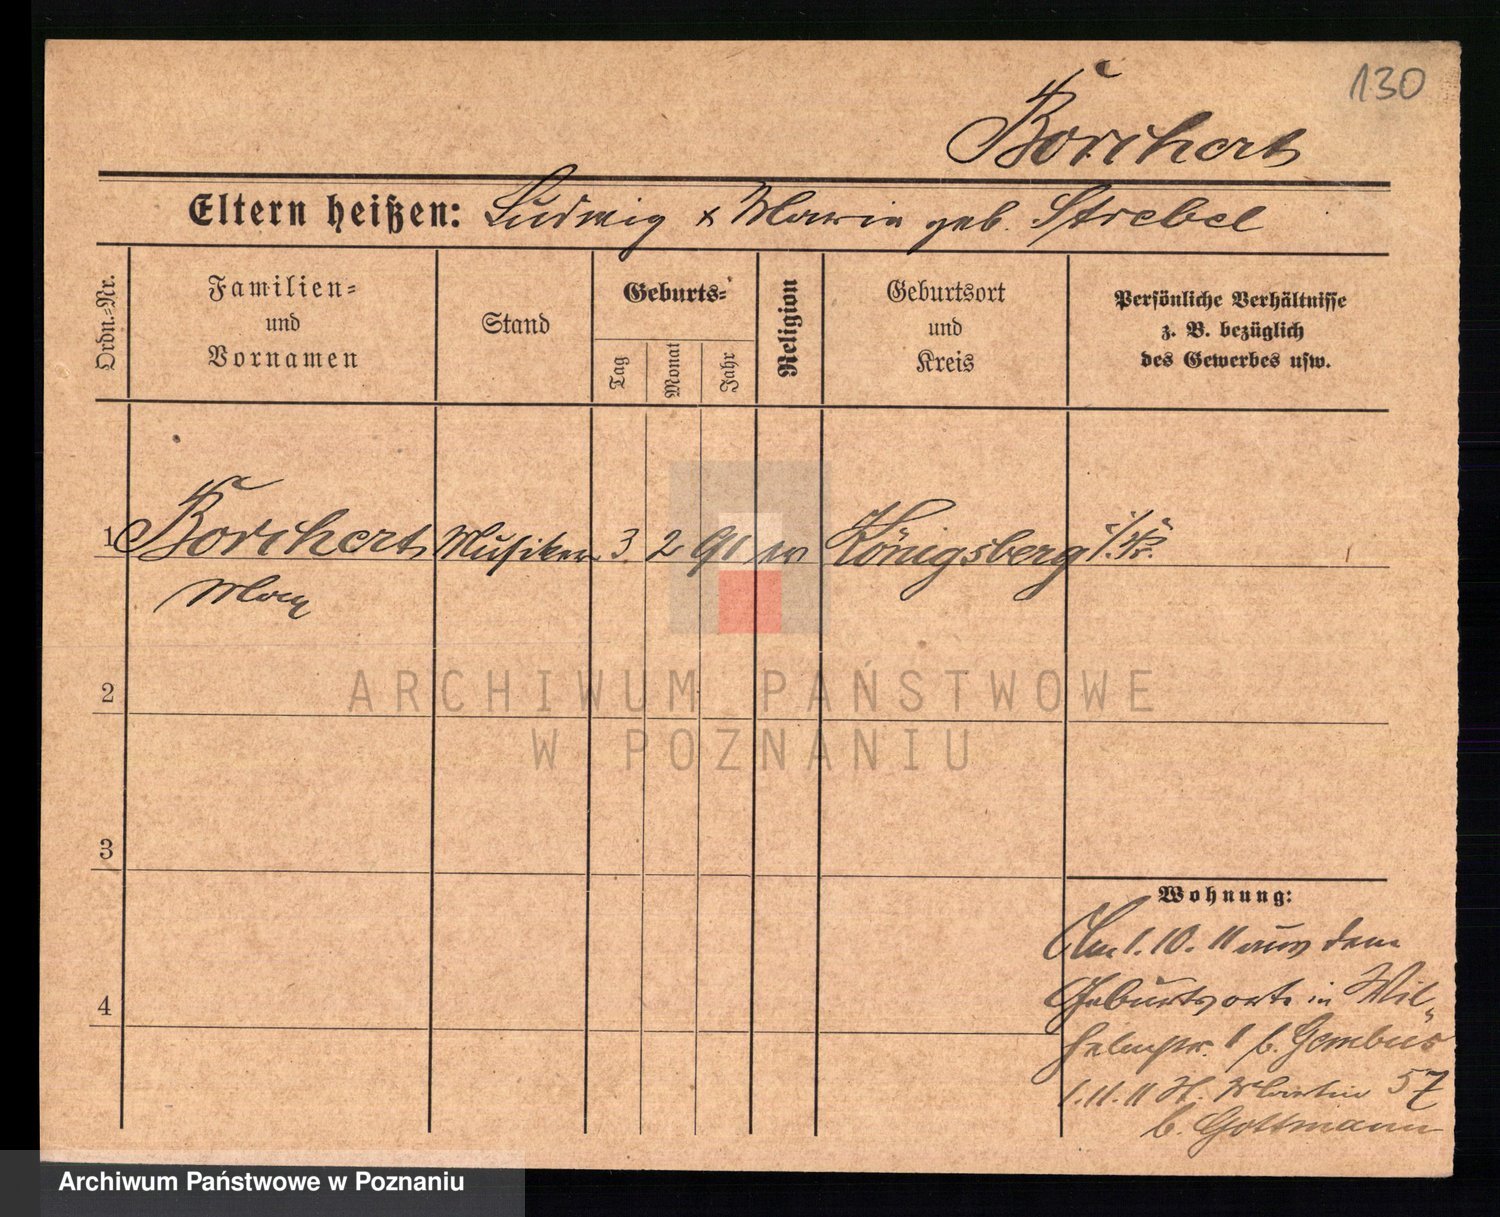 130
Borchert
Eltern heißen: Ludwig & Maria geb. Strebel
Ordn.=Nr.
Familien=
und
Vornamen
Stand
Geburts=
Tag
Monat
Jahr
Religion
Geburtsort
und
Kreis
Persönliche Verhältnisse
z. B. bezüglich
des Gewerbes usw.
1 Borchert Musiker 3 2 91 ev Königsberg i./Pr.
Max
ARCHIWUM PAŃSTWOWE
W POZNANIU
2
3
4
Wohnung:
Am 1.10.11 aus dem
Geburtsorte in Wil=
helmstr. 1 b. Gembus
1.11.11 St. Martin 57
b. Gottmann
Archiwum Państwowe w Poznaniu